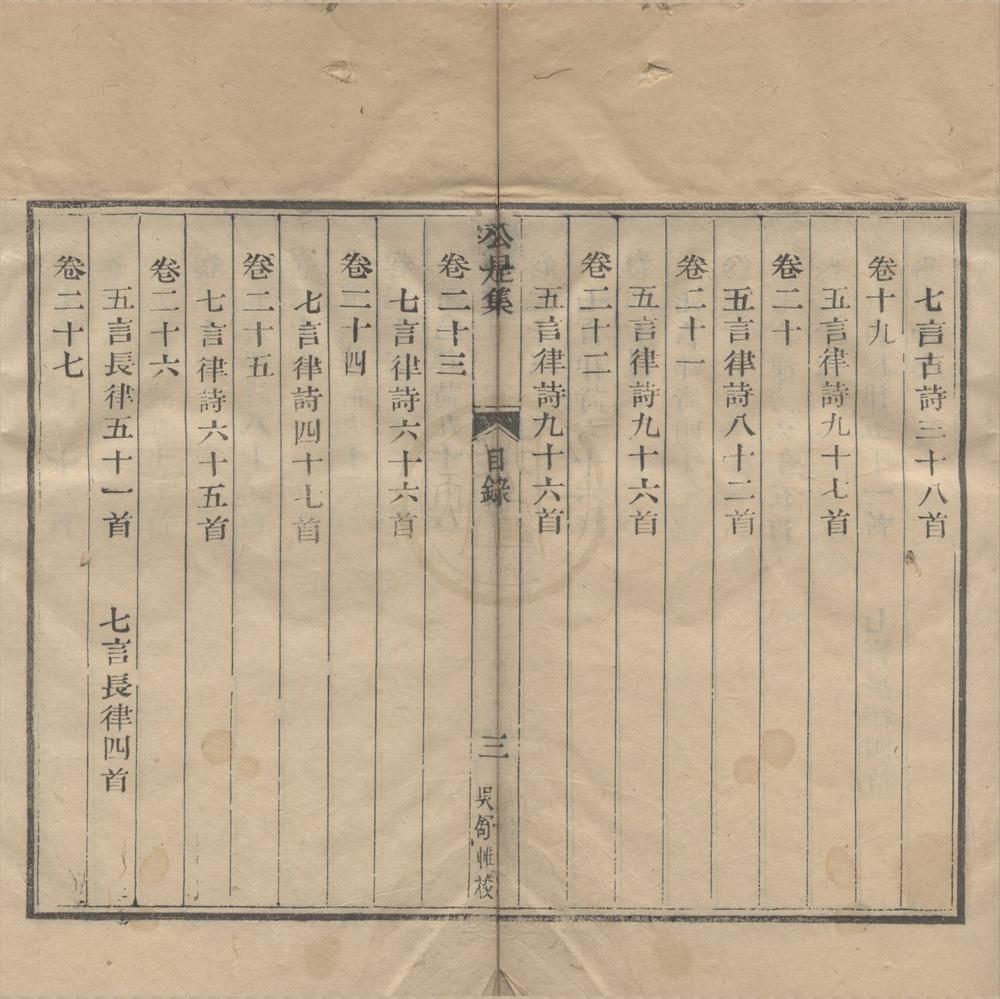 七言古詩三十八首
卷十九
五言律詩九十七首
卷二十
五言律詩八十二首
卷二十一
五言律詩九十六首
卷二十二
五言律詩九十六首
公是集
目錄
三
吳舒帷校
卷二十三
七言律詩六十六首
卷二十四
七言律詩四十七首
卷二十五
七言律詩六十五首
卷二十六
五言長律五十一首　七言長律四首
卷二十七